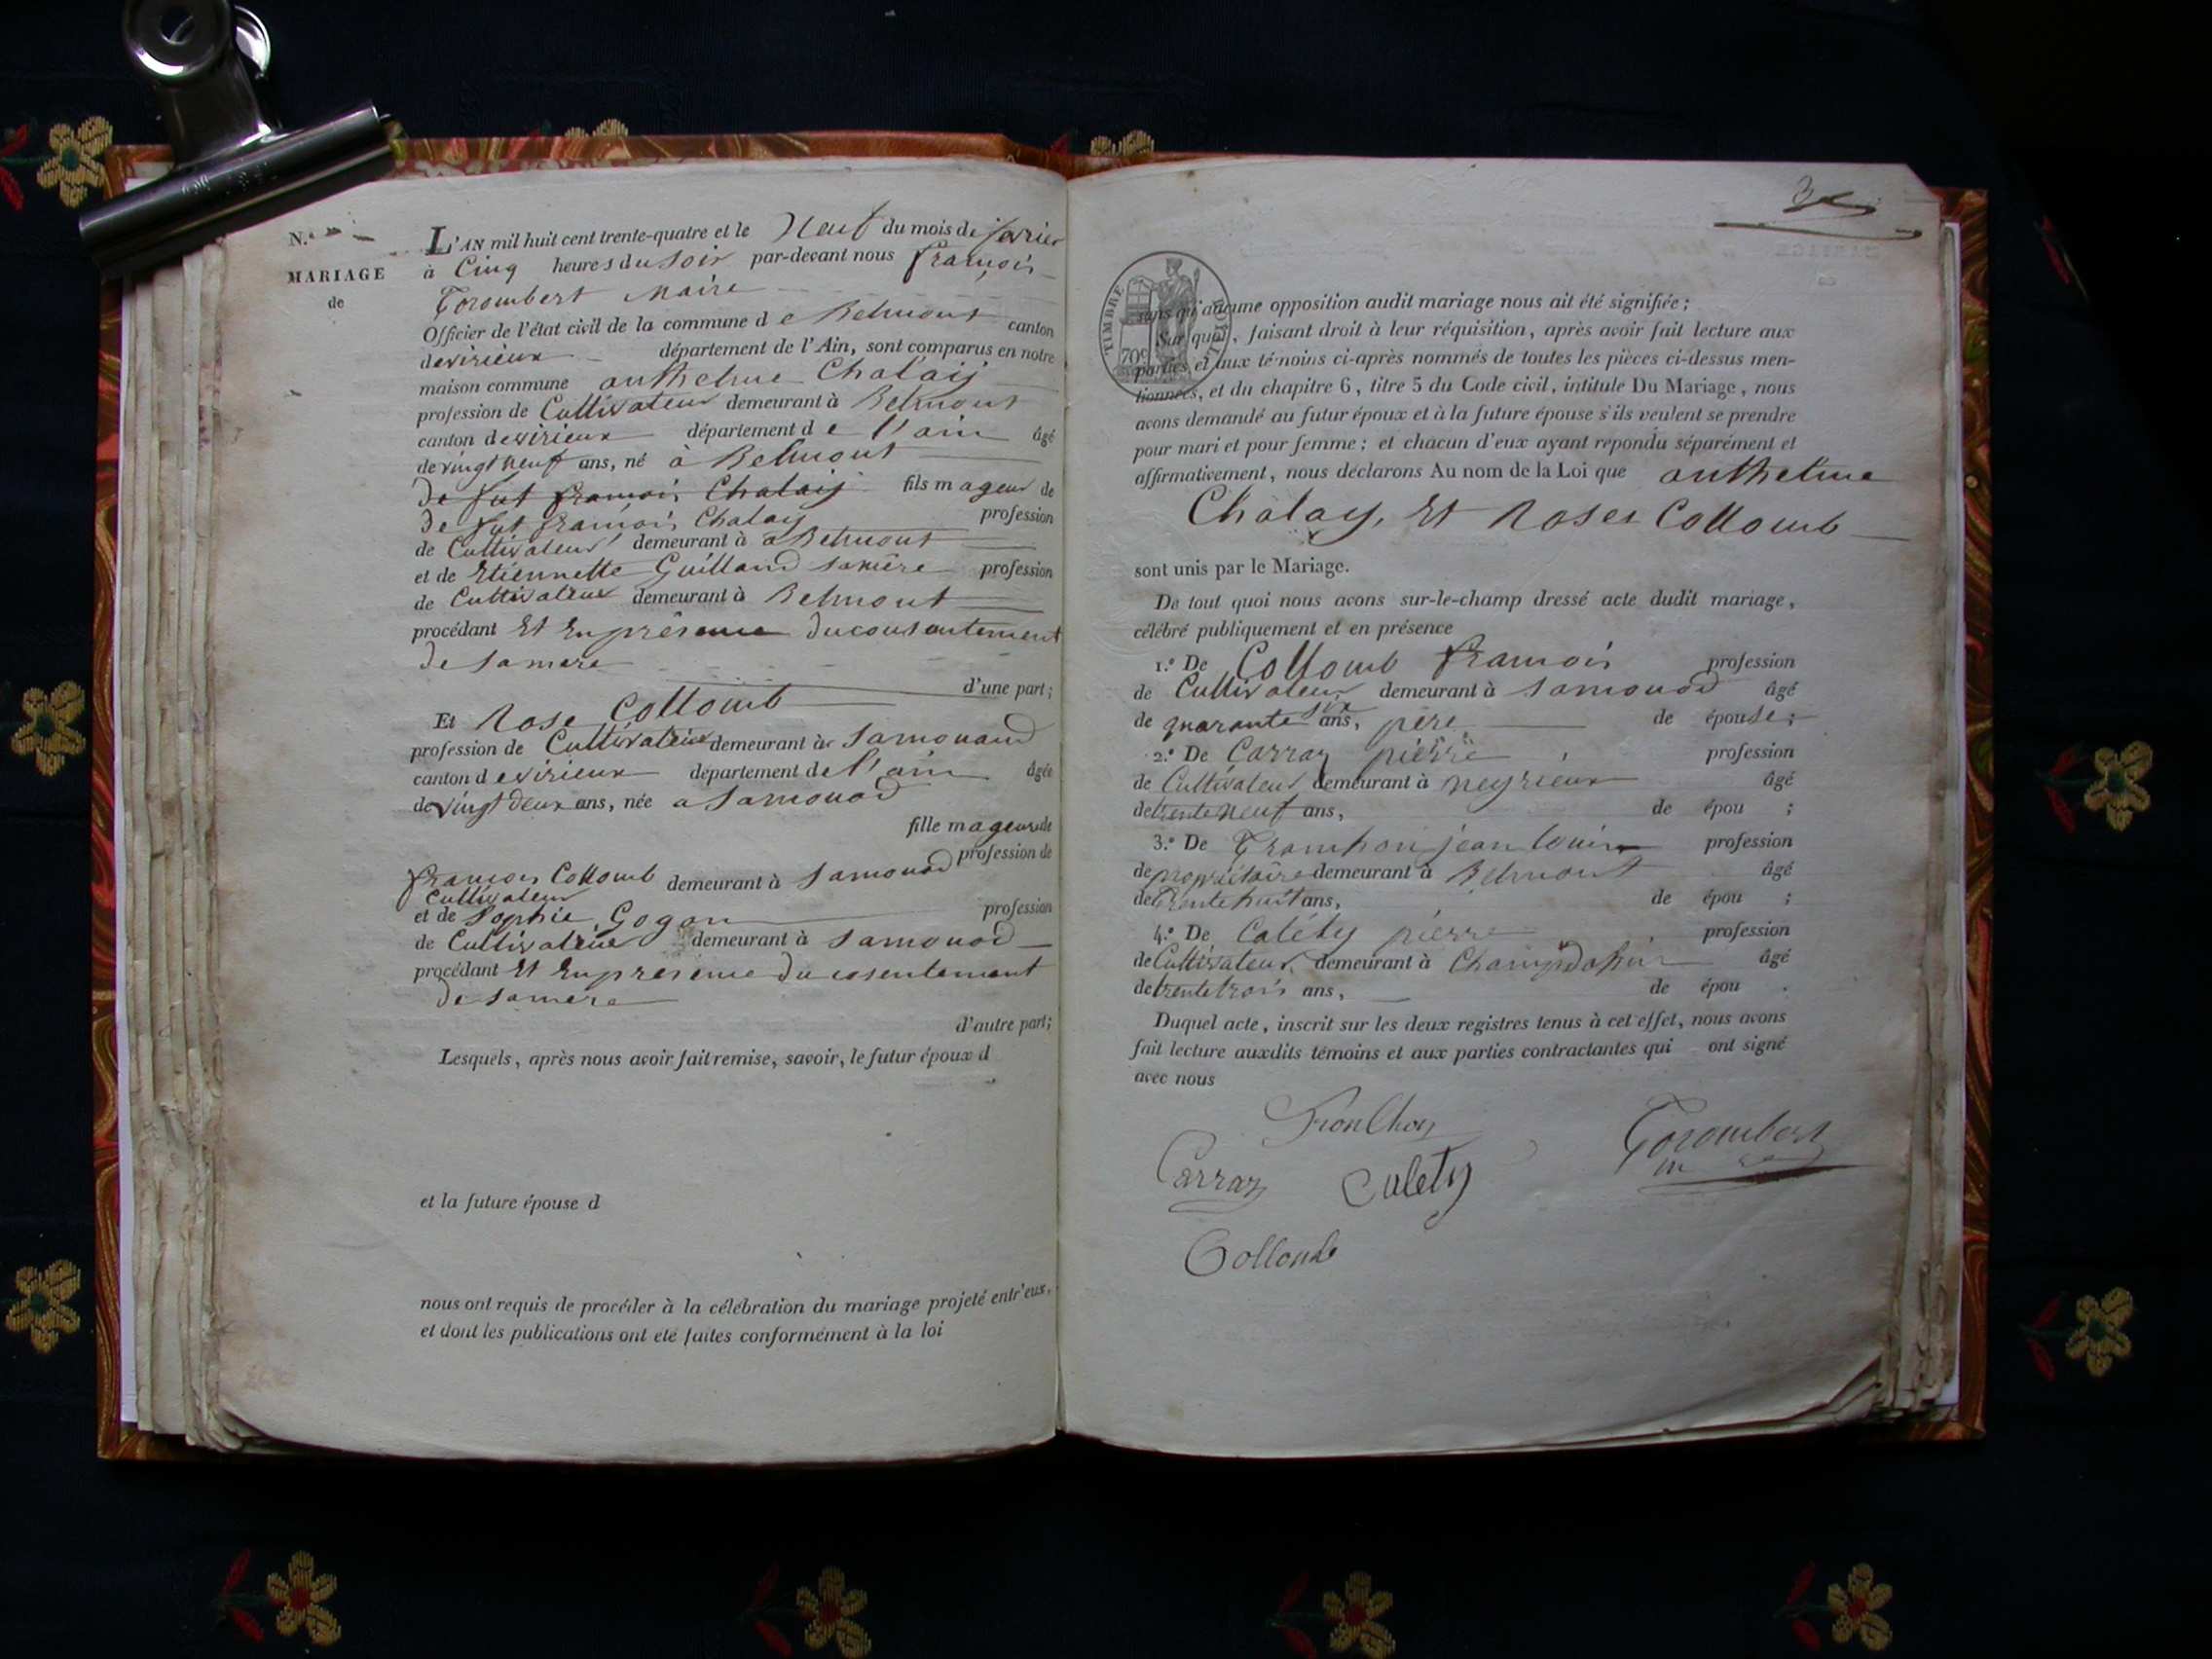 N.º
MARIAGE
de
L'AN mil huit cent trente-quatre et le Neuf du mois de fevrier
à Cinq heures du Soir par-devant nous françois
Torombert Maire
Officier de l'état civil de la commune d e Belmont canton
de virieux département de l'Ain, sont comparus en notre
maison commune anthelme Chalaÿ
profession de Cultivateur demeurant à Belmont
canton de virieux département d e l'ain âgé
de vingt neuf ans, né à Belmont
de fut françois Chalaÿ fils mageur de
De fut françois Chalay profession
de Cultivateur demeurant à a Belmont
et de Etiennette Guilland samère profession
de Cultivatrise demeurant à Belmont
procédant Et En présence du consentement
de samere
d'une part;
Et Rose Collomb
profession de Cultivatrise demeurant à Samonaud
canton d e virieux département de l'ain âgée
de vingt deux ans, née a Samonod
fille mageur de
profession de
françois Collomb demeurant à Samonod
Cultivateur
et de Sophie Gogon profession
de Cultivatrise demeurant à Samonod
procédant Et En presence du cosentement
de samere
d'autre part;
Lesquels, après nous avoir fait remise, savoir, le futur époux d
et la future épouse d
nous ont requis de procéder à la célébration du mariage projeté entr'eux,
et dont les publications ont été faites conformément à la loi
TIMBRE ROYAL
70c
sans qu'aucune opposition audit mariage nous ait été signifiée;
Sur quoi, faisant droit à leur réquisition, après avoir fait lecture aux
parties et aux témoins ci-après nommés de toutes les pièces ci-dessus men-
tionnées, et du chapitre 6, titre 5 du Code civil, intitulé Du Mariage, nous
avons demandé au futur époux et à la future épouse s'ils veulent se prendre
pour mari et pour femme; et chacun d'eux ayant répondu séparément et
affirmativement, nous déclarons Au nom de la Loi que anthelme
Chalay, Et Roses Collomb
sont unis par le Mariage.
De tout quoi nous avons sur-le-champ dressé acte dudit mariage,
célébré publiquement et en présence
1.º De Collomb françois profession
de Cultivateur demeurant à Samonod âgé
de quarante six ans, père de épouse;
2.º De Carraz pierre profession
de Cultivateur demeurant à neyrieux âgé
de trente neuf ans, de épou ;
3.º De jean louis profession
de propriétaire demeurant à Belmont âgé
de Trente huit ans, de épou ;
4.º De Caléty pierre profession
de Cultivateur demeurant à âgé
de trente trois ans, de épou .
Duquel acte, inscrit sur les deux registres tenus à cet effet, nous avons
fait lecture auxdits témoins et aux parties contractantes qui ont signé
avec nous
Torombert
Carraz Calety
Collomb